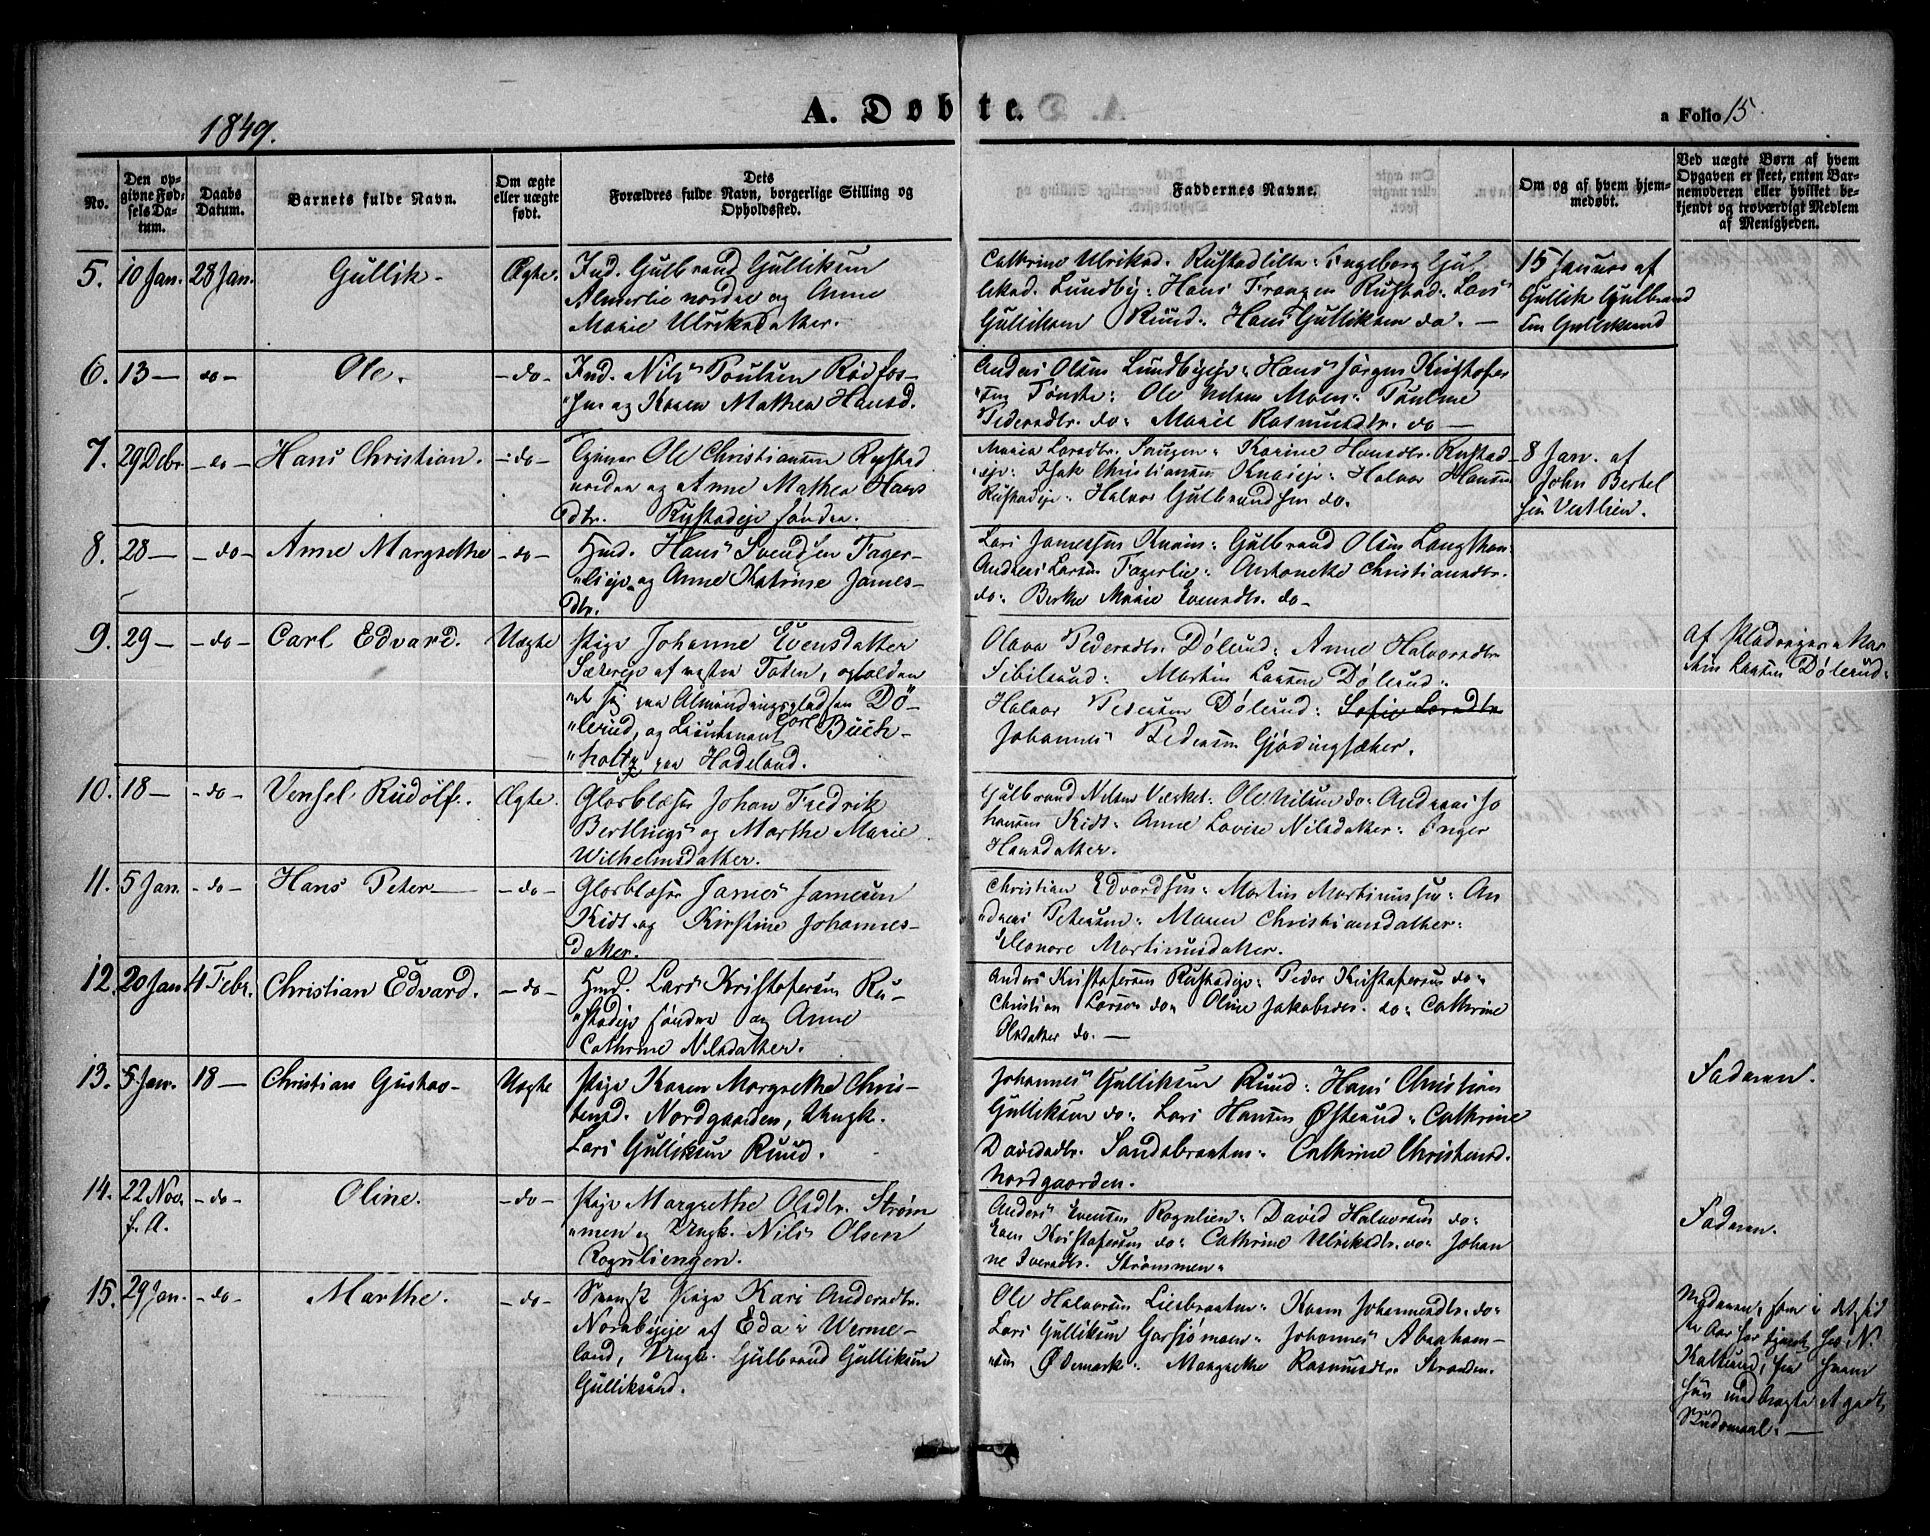 1849.
A. Døbte.
a Folio 15.
No.
Den op-
givne Fød-
sels Da-
tum.
Daabs
Datum.
Barnets fulde Navn.
Om ægte
eller uægte
født.
Dets
Forældres fulde Navn, borgerlige Stilling og
Opholdssted.
Faddernes Navne.
Om og af hvem hjem-
medøbt.
Ved uægte Børn af hvem
Opgaven er skeet, enten Bar-
nemoderen eller hvilket be-
kjendt og troværdigt Medlem
af Menigheden.
5. 10 Jan. 28 Jan. Gullik Ægte.
Ind. Gulbrand Gulliksen
Almerlie nordre og Anne
Marie Ulriksdatter.
Cathrine Ulriksd. Rustadlille: Ingeborg Gul
liksd. Lundby: Hans Frangen Rustad: Lars
Gulliksen Ruud: Hans Gulliksen do. —
15 Januar af
Gullik Gulbrand
sen Gulliksrud
6. 13 — do — Ole. — do —
Ind. Nils Poulsen Rødfos-
og Karen Mathea Hansd.
Anders Olsen Lundbyeje: Hans Jørgen Kristofer
sen Tønste: Ole Nilsen Moen: Pauline
Pedersdtr. do: Marie Rasmusdtr. do —
7. 29 Debr. — do — Hans Christian. — do —
Ole Christiansen Rustad
nordre og Anne Mathea Hans
dtr. Rustadeje søndre.
Maria Larsdtr. Karine Hansdtr. Rustad
eje: Isak Christiansen Halvor Hansen
Rustadeje: Halvor Gulbrandsen do.
8 Jan. af
John Bertel
sen Vestlien.
8. 28 — do — Anne Margrethe — do —
Hmd. Hans Svendsen Fager-
lieje og Anne Katrine James-
dtr.
Lars Jamessen Gulbrand Olsen
Andreas Larsen Fagerlie: Antonette Christiansdtr.
do: Berthe Marie Evensdtr. do —
9. 29 — do — Carl Edvard. Uægte
Pige Johanne Evensdatter
Sætereje af vestre Toten, opholden
de sig paa Almindingspladsen Dø-
lerud, og Lieutenant Carl Buch-
holtz paa Hadeland.
Olava Pedersdtr. Dølerud: Anne Halvorsdtr.
Sibilsrud: Martin Larsen Dølerud:
Halvor Pedersen Dølerud: Sofie Larsdtr
Johannes Pedersen Gjødingsæter.
af Pladseier Mar
tin Larsen Dølerud.
10. 18 — do — Vensel Rudolf. Ægte.
Glasblæser Johan Fredrik
Bertlings og Marthe Marie
Wilhelmsdatter.
Gulbrand Nilsen Værket: Ole Nilsen do: Andreas Jo
hansen Kidt: Anne Lovise Nilsdatter: Inger
Hansdatter.
11. 5 Jan. — do — Hans Peter — — do —
Glasblæser James Jamesen
Kidt og Kirstine Johannes-
datter.
Christian Edvardsen: Martin Martinussen: An
dreas Petersen: Maren Christiansdatter:
Eleonore Martinusdatter.
12. 20 Jan 4 Febr. Christian Edvard. — do —
Hmd. Lars Kristofersen Ru-
stadeje søndre og Anne
Cathrine Nilsdatter.
Anders Kristofersen Rustadeje: Peder Kristofersen do:
Christian Larsen do: Oline Jakobsdtr. do: Cathrine
Olsdatter do. —
13. 5 Jan. 18 — Christian Gustav — Uægte
Pige Karen Margrethe Chris-
tensd. Nordgaarden, Ungk.
Lars Gulliksen Ruud.
Johannes Gulliksen Ruud: Hans Christian
Gulliksen do: Lars Hansen Østerud: Cathrine
Davidsdtr. Sandsbraaten: Cathrine Christensd.
Nordgaarden.
Faderen.
14. 22 Nov. — do — Oline. — do —
f. A.
Pige Margrethe Olsdtr. Strøm
men og Ungk. Nils Olsen
Rognliengen.
Anders Evensen Rognlien: David Halvorsen do:
Even Kristofersen do: Cathrine Ulriksdtr. do: Johan
ne Iversdtr. Strømmen:
Faderen.
15. 29 Jan. — do — Marthe. — do —
Svensk Pige Kari Andersdtr.
Norabyeje af Eda i Werme-
land, Ungk. Gulbrand Gulliksen
Gulliksrud.
Ole Halvorsen Liesbraaten: Karen Johannesdtr. do:
Lars Gulliksen Garsjømoen: Johannes Abraham-
sen Ødemark: Margrethe Rasmusdtr. Stranden.
Moderen, som i det sid
ste Aar har tjent hos N.
fra hvem
hun medbragte et godt
Skudsmaal. —